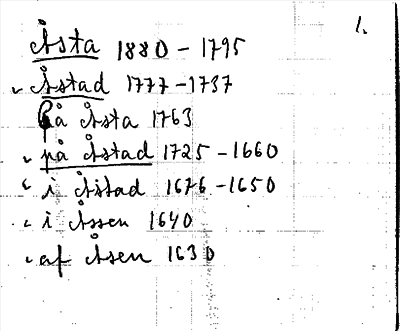 1.
Åsta 1880 - 1795
Åstad 1777 - 1737
på Åsta 1763
på Åstad 1725 - 1660
i Åstad 1676 - 1650
i Åssen 1640
af Åsen 1630